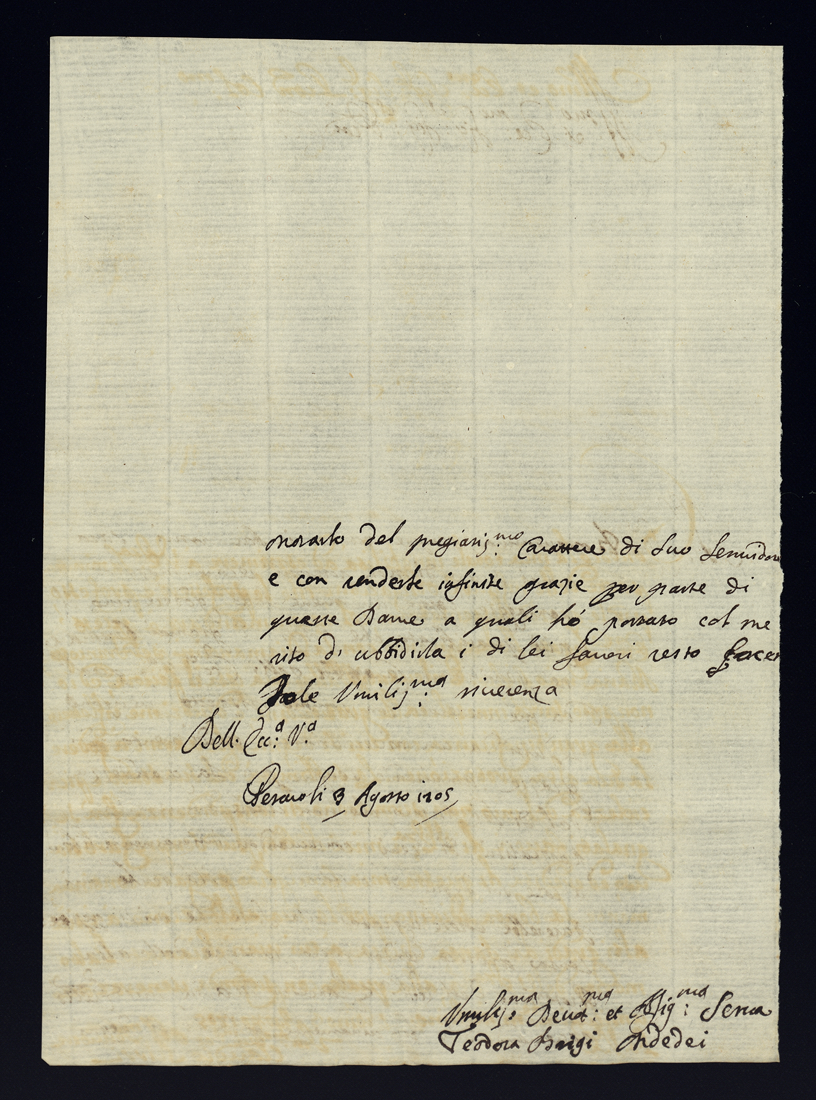 onorarlo del pregiatis:mo Carattere di suo Seruidore
e con renderle infinite grazie per parte di
queste Dame a quali hò portato col me
rito d' ubbidirla i di lei fauori resto facen
dole Vmilis:ma riuerenza
Dell. Ecc:a V:a
Pesaro li 3 Agosto 1705
Vmilis:ma Deuot:ma et Oblig:ma Serua
Teodora Ardedei